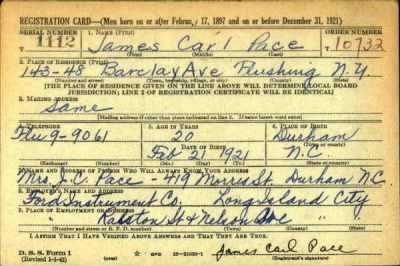 REGISTRATION CARD—(Men born on or after February 17, 1897 and on or before December 31, 1921)
SERIAL NUMBER 1. NAME (Print) ORDER NUMBER
1112 James Carl Pace 10732
2. PLACE OF RESIDENCE (Print)
143-48 Barclay Ave Flushing N.Y.
(Number and street) (Town, township, village, or city) (County) (State)
[THE PLACE OF RESIDENCE GIVEN ON THE LINE ABOVE WILL DETERMINE LOCAL BOARD
JURISDICTION; LINE 2 OF REGISTRATION CERTIFICATE WILL BE IDENTICAL]
3. MAILING ADDRESS
Same
[Mailing address if other than place indicated on line 2. If same insert word same]
4. TELEPHONE 5. AGE IN YEARS 6. PLACE OF BIRTH
Flu 9-9061 20 Durham
DATE OF BIRTH (Town or county)
Feb 21 1921 N.C.
(Mo.) (Day) (Yr.) (State or country)
7. NAME AND ADDRESS OF PERSON WHO WILL ALWAYS KNOW YOUR ADDRESS
Mrs J.C. Pace - 419 Morris St. Durham N.C.
8. EMPLOYER'S NAME AND ADDRESS
Ford Instrument Co. Long Island City
9. PLACE OF EMPLOYMENT OR BUSINESS
Nelson Ave "
(Number and street or R. F. D. number) (Town) (County) (State)
I AFFIRM THAT I HAVE VERIFIED ABOVE ANSWERS AND THAT THEY ARE TRUE.
D. S. S. Form 1
(Revised 1-1-42) GPO 16—21630-1 James Carl Pace
(Registrant's signature)